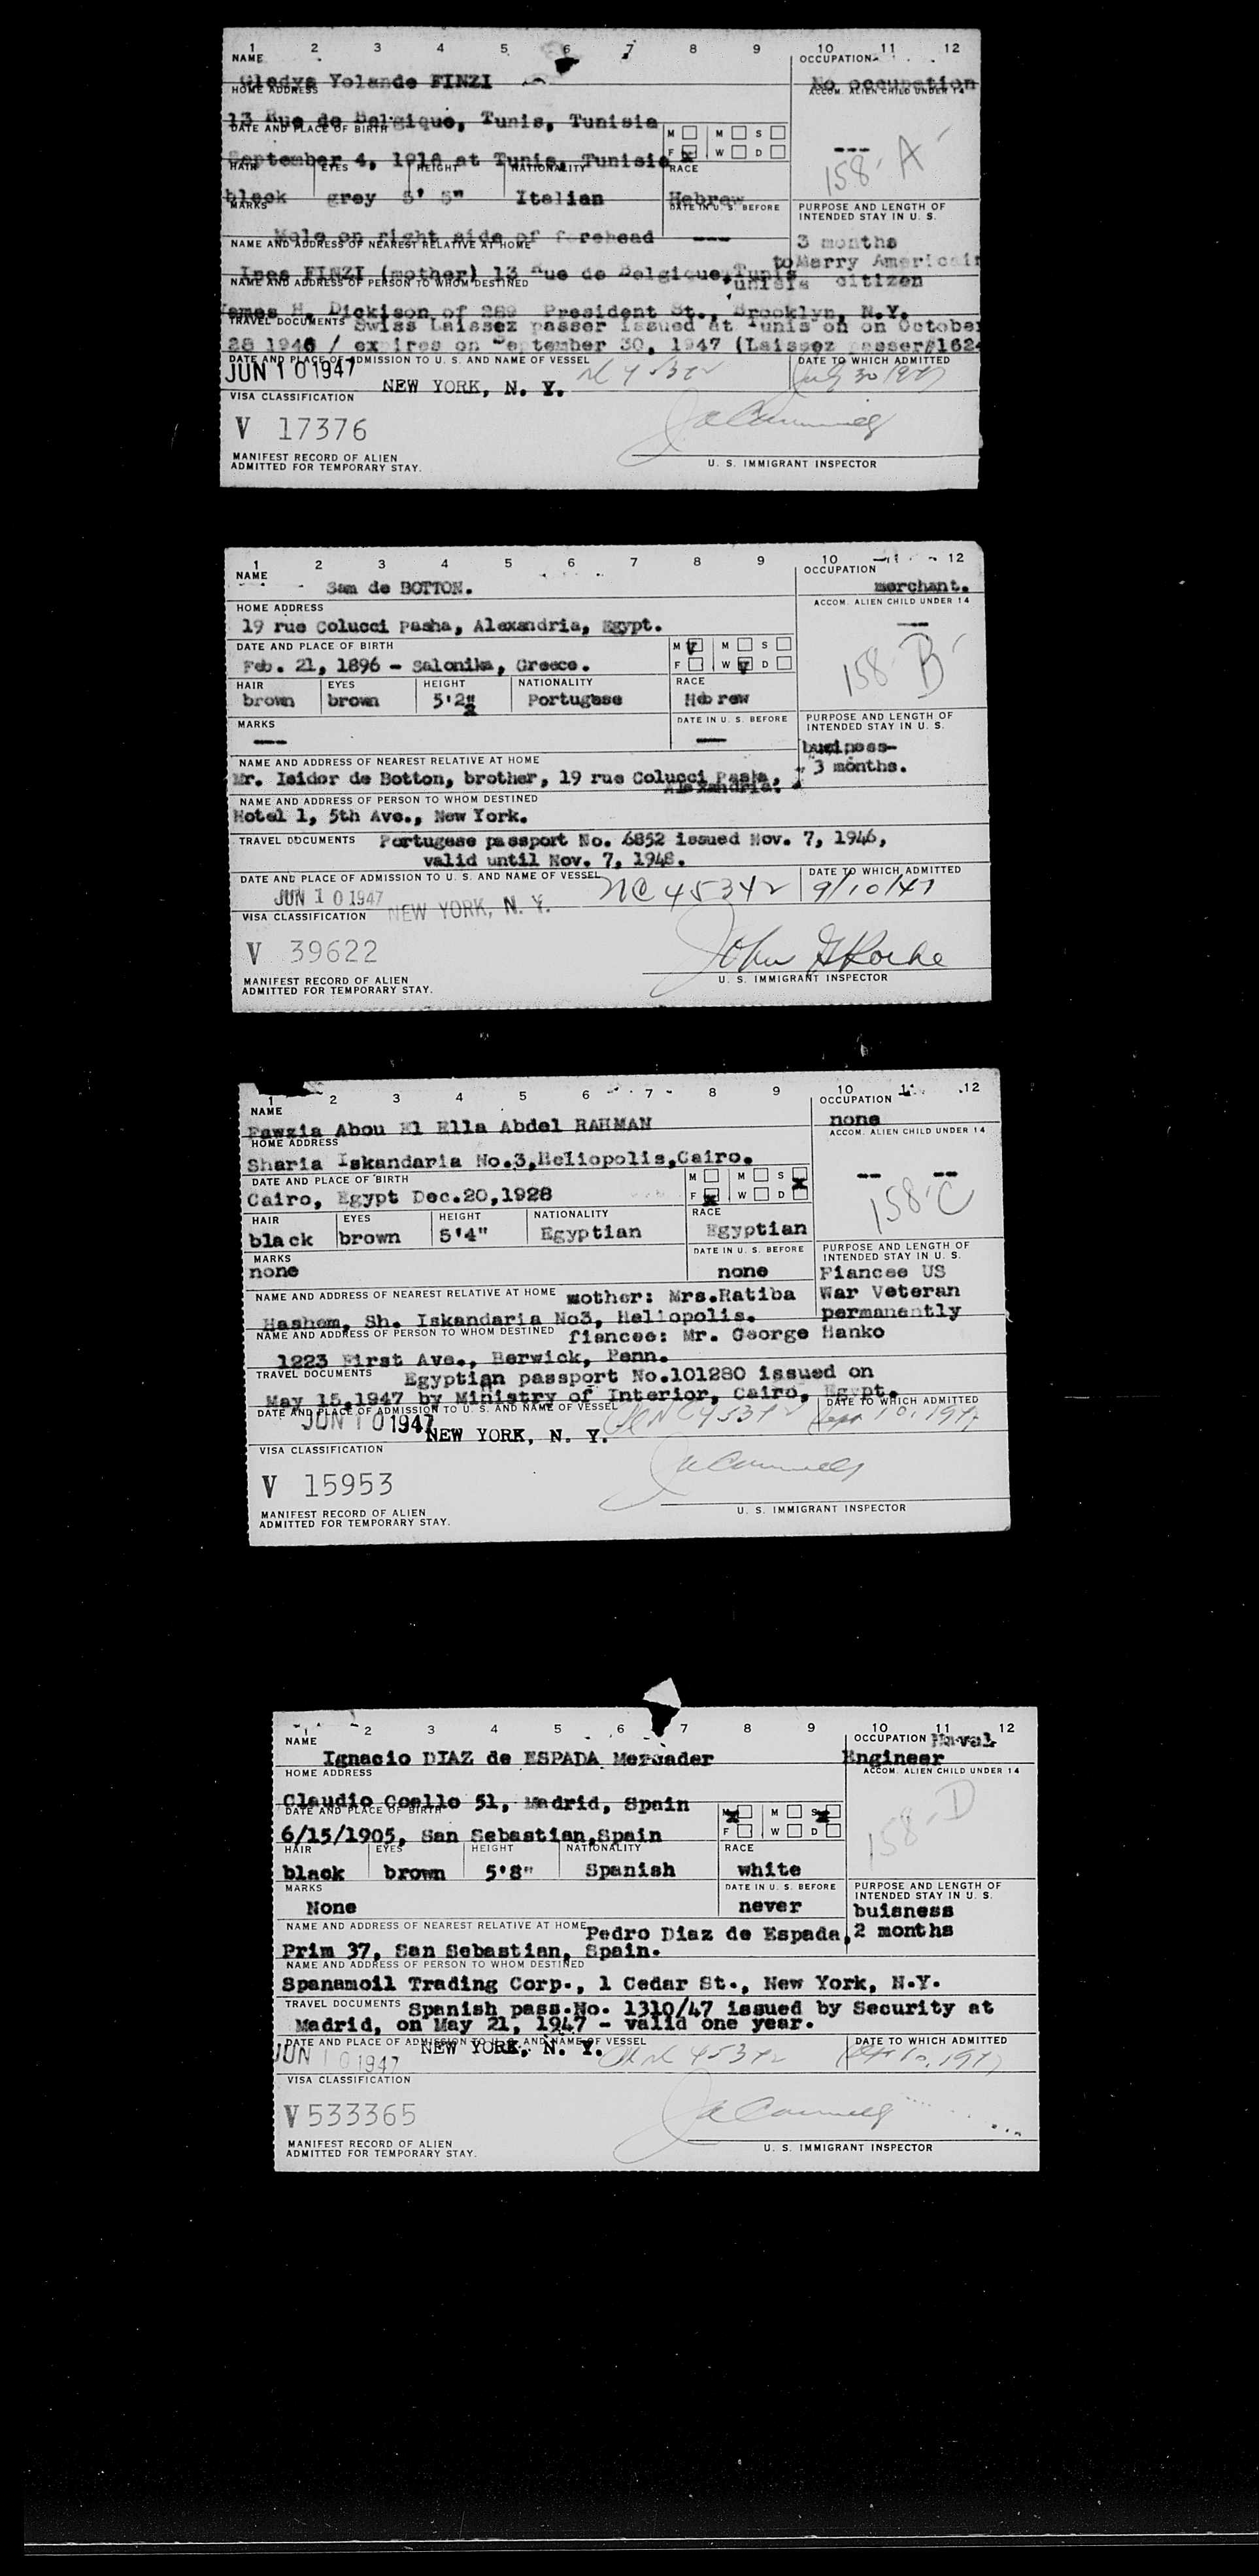 1 2 3 4 5 6 7 8 9 10 11 12
NAME OCCUPATION
Gladys Yolande FINZI No occupation
HOME ADDRESS ACCOM. ALIEN CHILD UNDER 14
13 Rue de Belgique, Tunis, Tunisia
DATE AND PLACE OF BIRTH M M S
September 4, 1918 at Tunis, Tunisia F x W D ---
158-A
HAIR EYES HEIGHT NATIONALITY RACE
black grey 5' 5" Italian Hebrew
MARKS DATE IN U. S. BEFORE PURPOSE AND LENGTH OF
INTENDED STAY IN U. S.
Mole on right side of forehead --- 3 months
NAME AND ADDRESS OF NEAREST RELATIVE AT HOME to Marry American
Ines FINZI (mother) 13 Rue de Belgique, Tunis
unisia citizen
NAME AND ADDRESS OF PERSON TO WHOM DESTINED
James H. Dickison of 289 President St., Brooklyn, N.Y.
TRAVEL DOCUMENTS Swiss Laissez passer issued at Tunis on on October
28 1946 / expires on September 30, 1947 (Laissez passer#1624
DATE AND PLACE OF ADMISSION TO U. S. AND NAME OF VESSEL DATE TO WHICH ADMITTED
JUN 10 1947 NEW YORK, N. Y. July 30 1947
VISA CLASSIFICATION
V 17376
MANIFEST RECORD OF ALIEN
ADMITTED FOR TEMPORARY STAY. U. S. IMMIGRANT INSPECTOR
1 2 3 4 5 6 7 8 9 10 11 12
NAME OCCUPATION
Sam de BOTTON. merchant.
HOME ADDRESS ACCOM. ALIEN CHILD UNDER 14
19 rue Colucci Pasha, Alexandria, Egypt. ---
DATE AND PLACE OF BIRTH M M S
Feb. 21, 1896 - Salonika, Greece. F W D
158 B
HAIR EYES HEIGHT NATIONALITY RACE
brown brown 5'2" Portugese Hebrew
MARKS DATE IN U. S. BEFORE PURPOSE AND LENGTH OF
INTENDED STAY IN U. S.
--- --- business-
NAME AND ADDRESS OF NEAREST RELATIVE AT HOME 3 months.
Mr. Isidor de Botton, brother, 19 rue Colucci Pasha,
Alexandria.
NAME AND ADDRESS OF PERSON TO WHOM DESTINED
Hotel 1, 5th Ave., New York.
TRAVEL DOCUMENTS Portugese passport No. 6852 issued Nov. 7, 1946,
valid until Nov. 7, 1948.
DATE AND PLACE OF ADMISSION TO U. S. AND NAME OF VESSEL DATE TO WHICH ADMITTED
JUN 10 1947 NEW YORK, N. Y. NC 45342 9/10/47
VISA CLASSIFICATION
V 39622 John G Roche
MANIFEST RECORD OF ALIEN
ADMITTED FOR TEMPORARY STAY. U. S. IMMIGRANT INSPECTOR
1 2 3 4 5 6 7 8 9 10 11 12
NAME OCCUPATION
Fawzia Abou El Ella Abdel RAHMAN none
HOME ADDRESS ACCOM. ALIEN CHILD UNDER 14
Sharia Iskandaria No.3,Heliopolis,Cairo.
DATE AND PLACE OF BIRTH M M S x -- --
Cairo, Egypt Dec.20,1928 F x W D
158-C
HAIR EYES HEIGHT NATIONALITY RACE
black brown 5'4" Egyptian Egyptian
MARKS DATE IN U. S. BEFORE PURPOSE AND LENGTH OF
INTENDED STAY IN U. S.
none none Fiancee US
NAME AND ADDRESS OF NEAREST RELATIVE AT HOME mother: Mrs.Ratiba War Veteran
Hashem, Sh. Iskandaria No3, Heliopolis. permanently
NAME AND ADDRESS OF PERSON TO WHOM DESTINED fiancee: Mr. George Hanko
1223 First Ave., Berwick, Penn.
TRAVEL DOCUMENTS Egyptian passport No.101280 issued on
May 15,1947 by Ministry of Interior, Cairo, Egypt.
DATE AND PLACE OF ADMISSION TO U. S. AND NAME OF VESSEL DATE TO WHICH ADMITTED
JUN 10 1947 NEW YORK, N. Y. NC 45342 Sept 10, 1947
VISA CLASSIFICATION
V 15953
MANIFEST RECORD OF ALIEN
ADMITTED FOR TEMPORARY STAY. U. S. IMMIGRANT INSPECTOR
1 2 3 4 5 6 7 8 9 10 11 12
NAME OCCUPATION Naval
Ignacio DIAZ de ESPADA Mercader Engineer
HOME ADDRESS ACCOM. ALIEN CHILD UNDER 14
Claudio Coello 51, Madrid, Spain
DATE AND PLACE OF BIRTH M x M S x
6/15/1905, San Sebastian,Spain F W D
158-D
HAIR EYES HEIGHT NATIONALITY RACE
black brown 5'8" Spanish white
MARKS DATE IN U. S. BEFORE PURPOSE AND LENGTH OF
INTENDED STAY IN U. S.
None never buisness
NAME AND ADDRESS OF NEAREST RELATIVE AT HOME Pedro Diaz de Espada, 2 months
Prim 37, San Sebastian, Spain.
NAME AND ADDRESS OF PERSON TO WHOM DESTINED
Spanamoil Trading Corp., 1 Cedar St., New York, N.Y.
TRAVEL DOCUMENTS Spanish pass.No. 1310/47 issued by Security at
Madrid, on May 21, 1947 - valid one year.
DATE AND PLACE OF ADMISSION TO U. S. AND NAME OF VESSEL DATE TO WHICH ADMITTED
JUN 10 1947 NEW YORK, N. Y. 45342 Sept 10, 1947
VISA CLASSIFICATION
V 533365
MANIFEST RECORD OF ALIEN
ADMITTED FOR TEMPORARY STAY. U. S. IMMIGRANT INSPECTOR